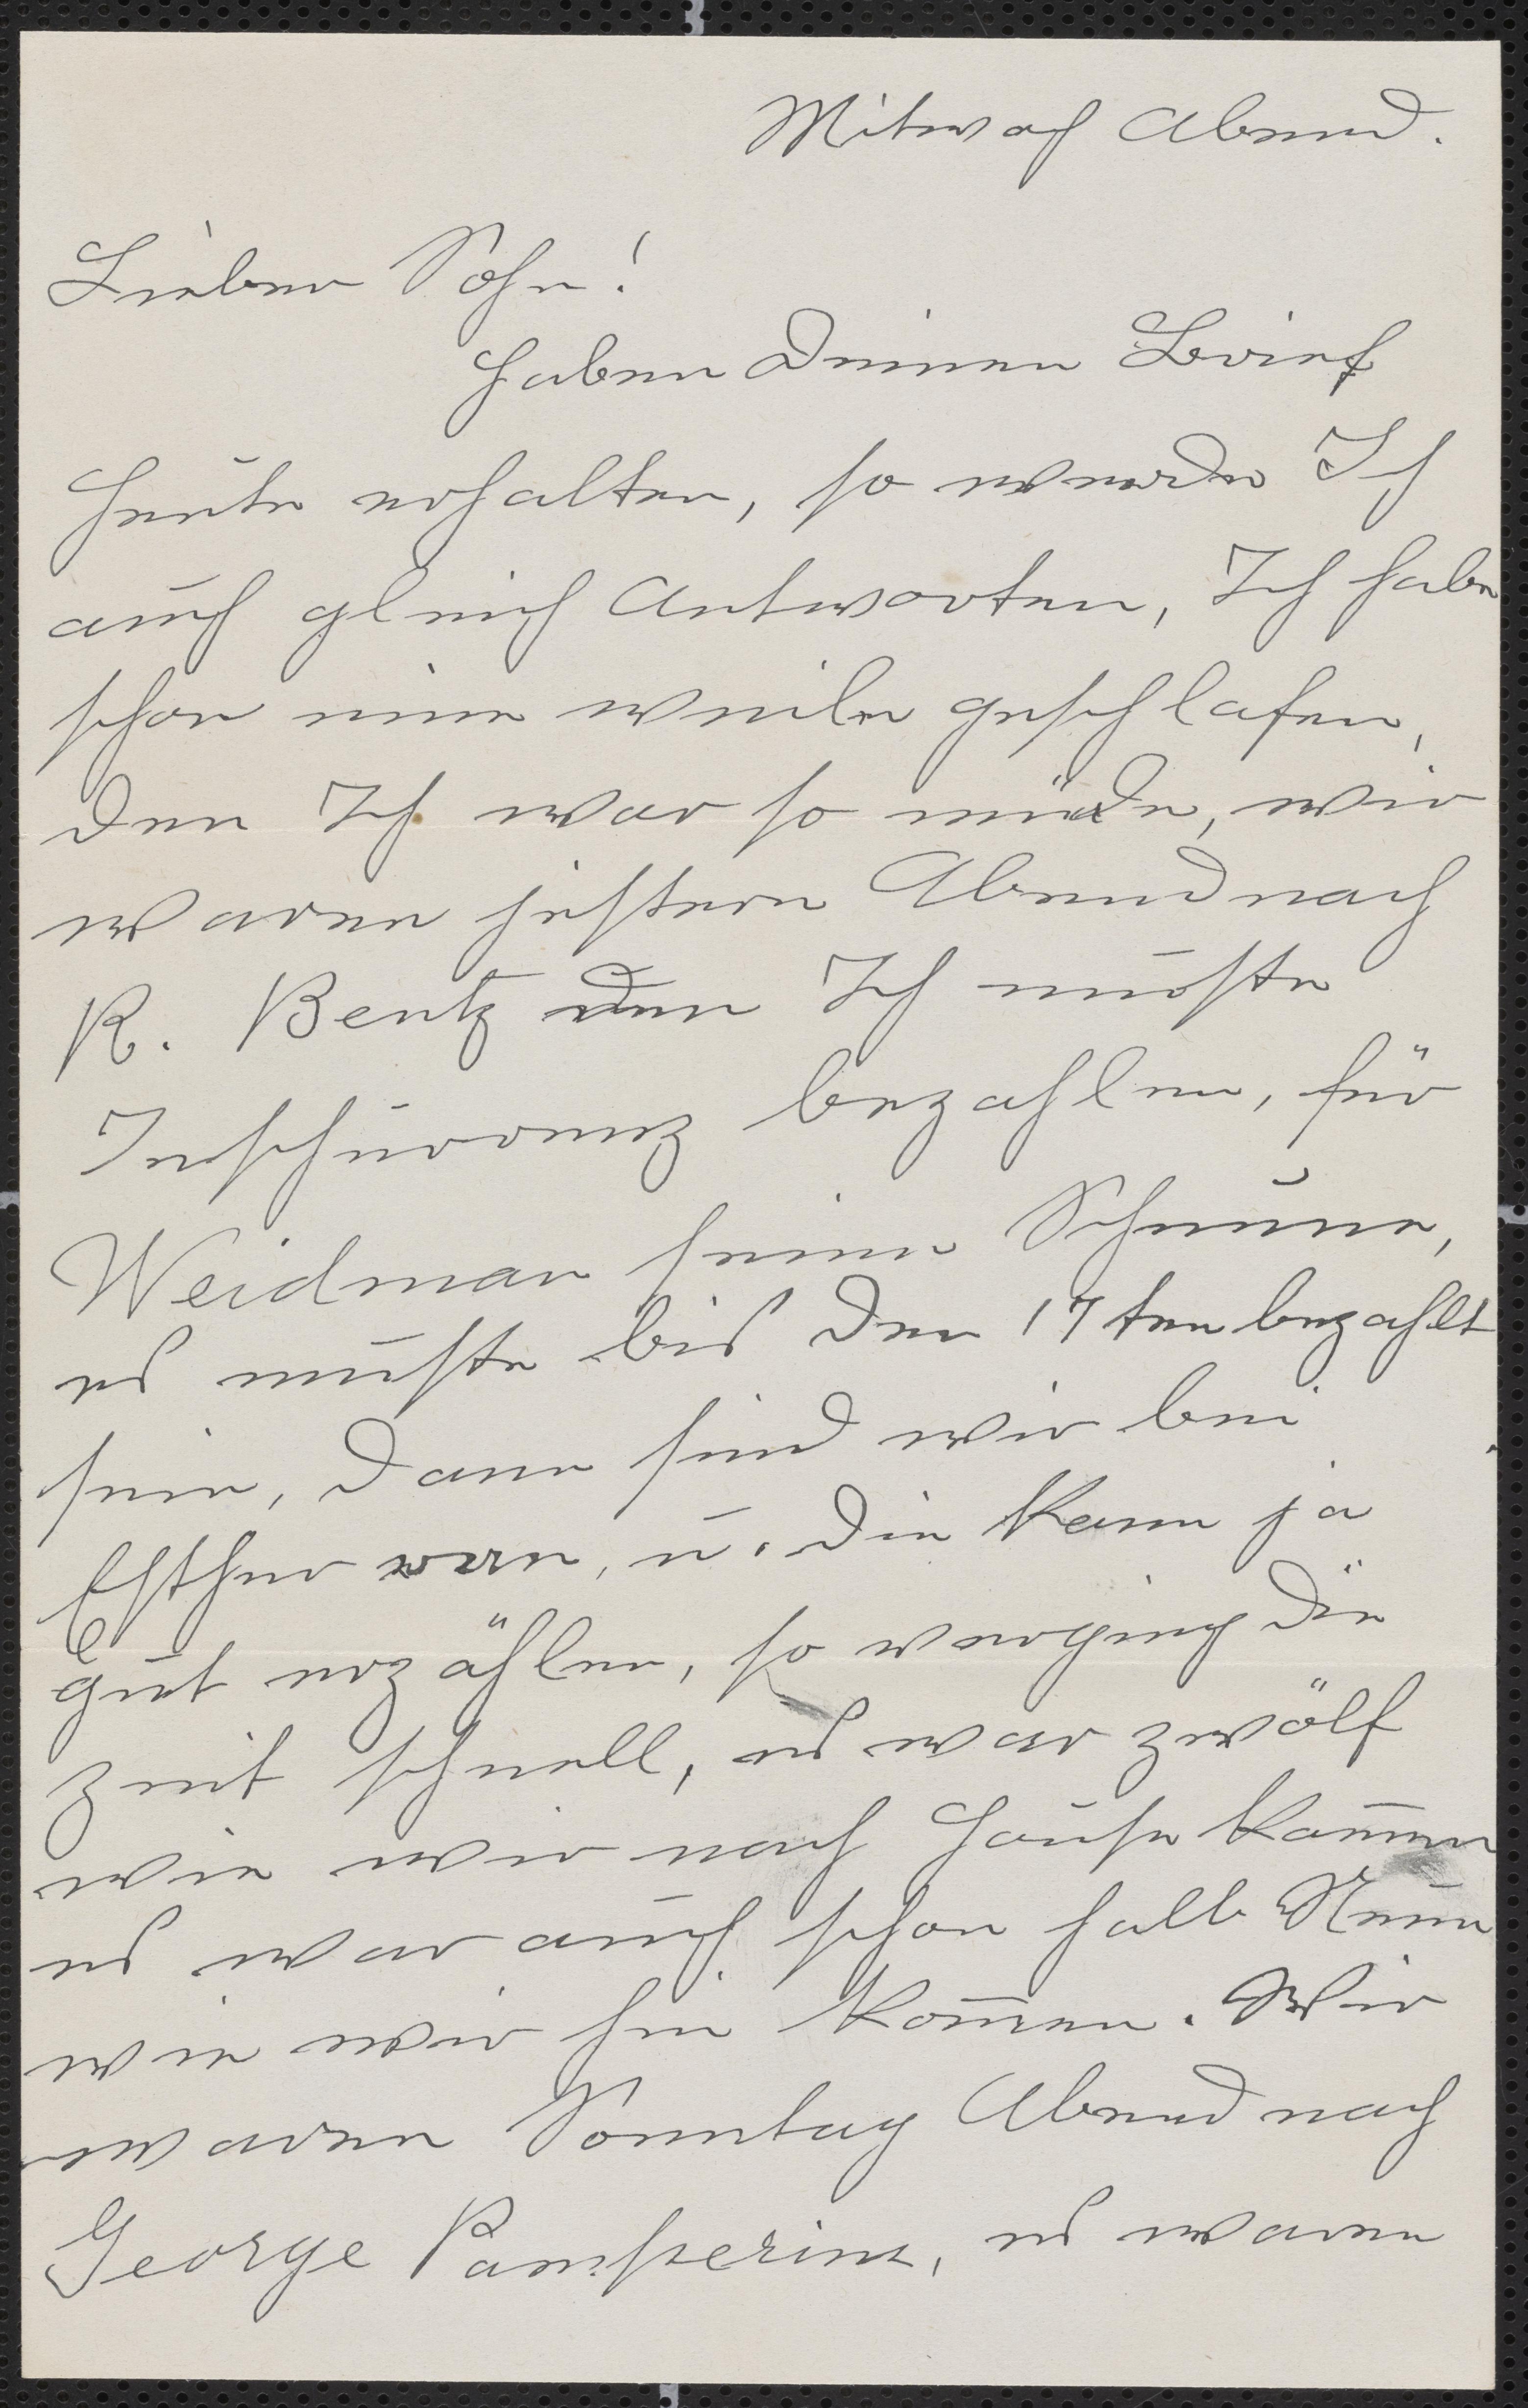 Mitwoch Abend.
Lieber Sohn!
Haben Deinen Brief
heute erhalten, so werde Ich
auch gleich Antworten, Ich habe
schon eine weile geschlafen,
den Ich war so müde, wir
waren jestern Abend nach
R. Bentz den Ich muste
Inschurrenz bezahlen, für
Weidman seine Scheune,
es muste bis den 17ten bezahlt
sein, dann sind wir bei
Esther wen, u. die kann ja
gut erzählen, so verging die
zeit schnell, es war zwölf
wie wir nach Hause kamen
es war auch schon halb Neun
wie wir hin kamen. Wir
waren Sonntag Abend nach
George Pamperins, es waren